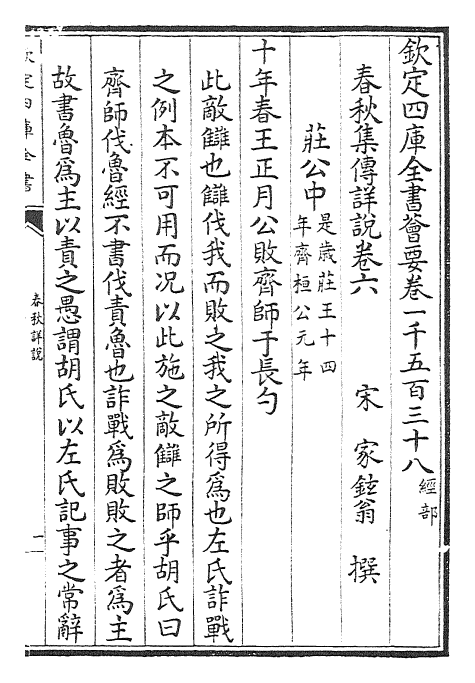 欽定四庫全書薈要卷一千五百三十八經部
春秋集傳詳說卷六　宋　家鉉翁　撰
莊公中是歲莊王十四年齊桓公元年
十年春王正月公敗齊師于長勺
此敵讎也讎伐我而敗之我之所得為也左氏詐戰
之例本不可用而况以此施之敵讎之師乎胡氏曰
齊師伐魯經不書伐責魯也詐戰為敗敗之者為主
故書魯為主以責之愚謂胡氏以左氏記事之常辭
欽定四庫全書
春秋詳說
一